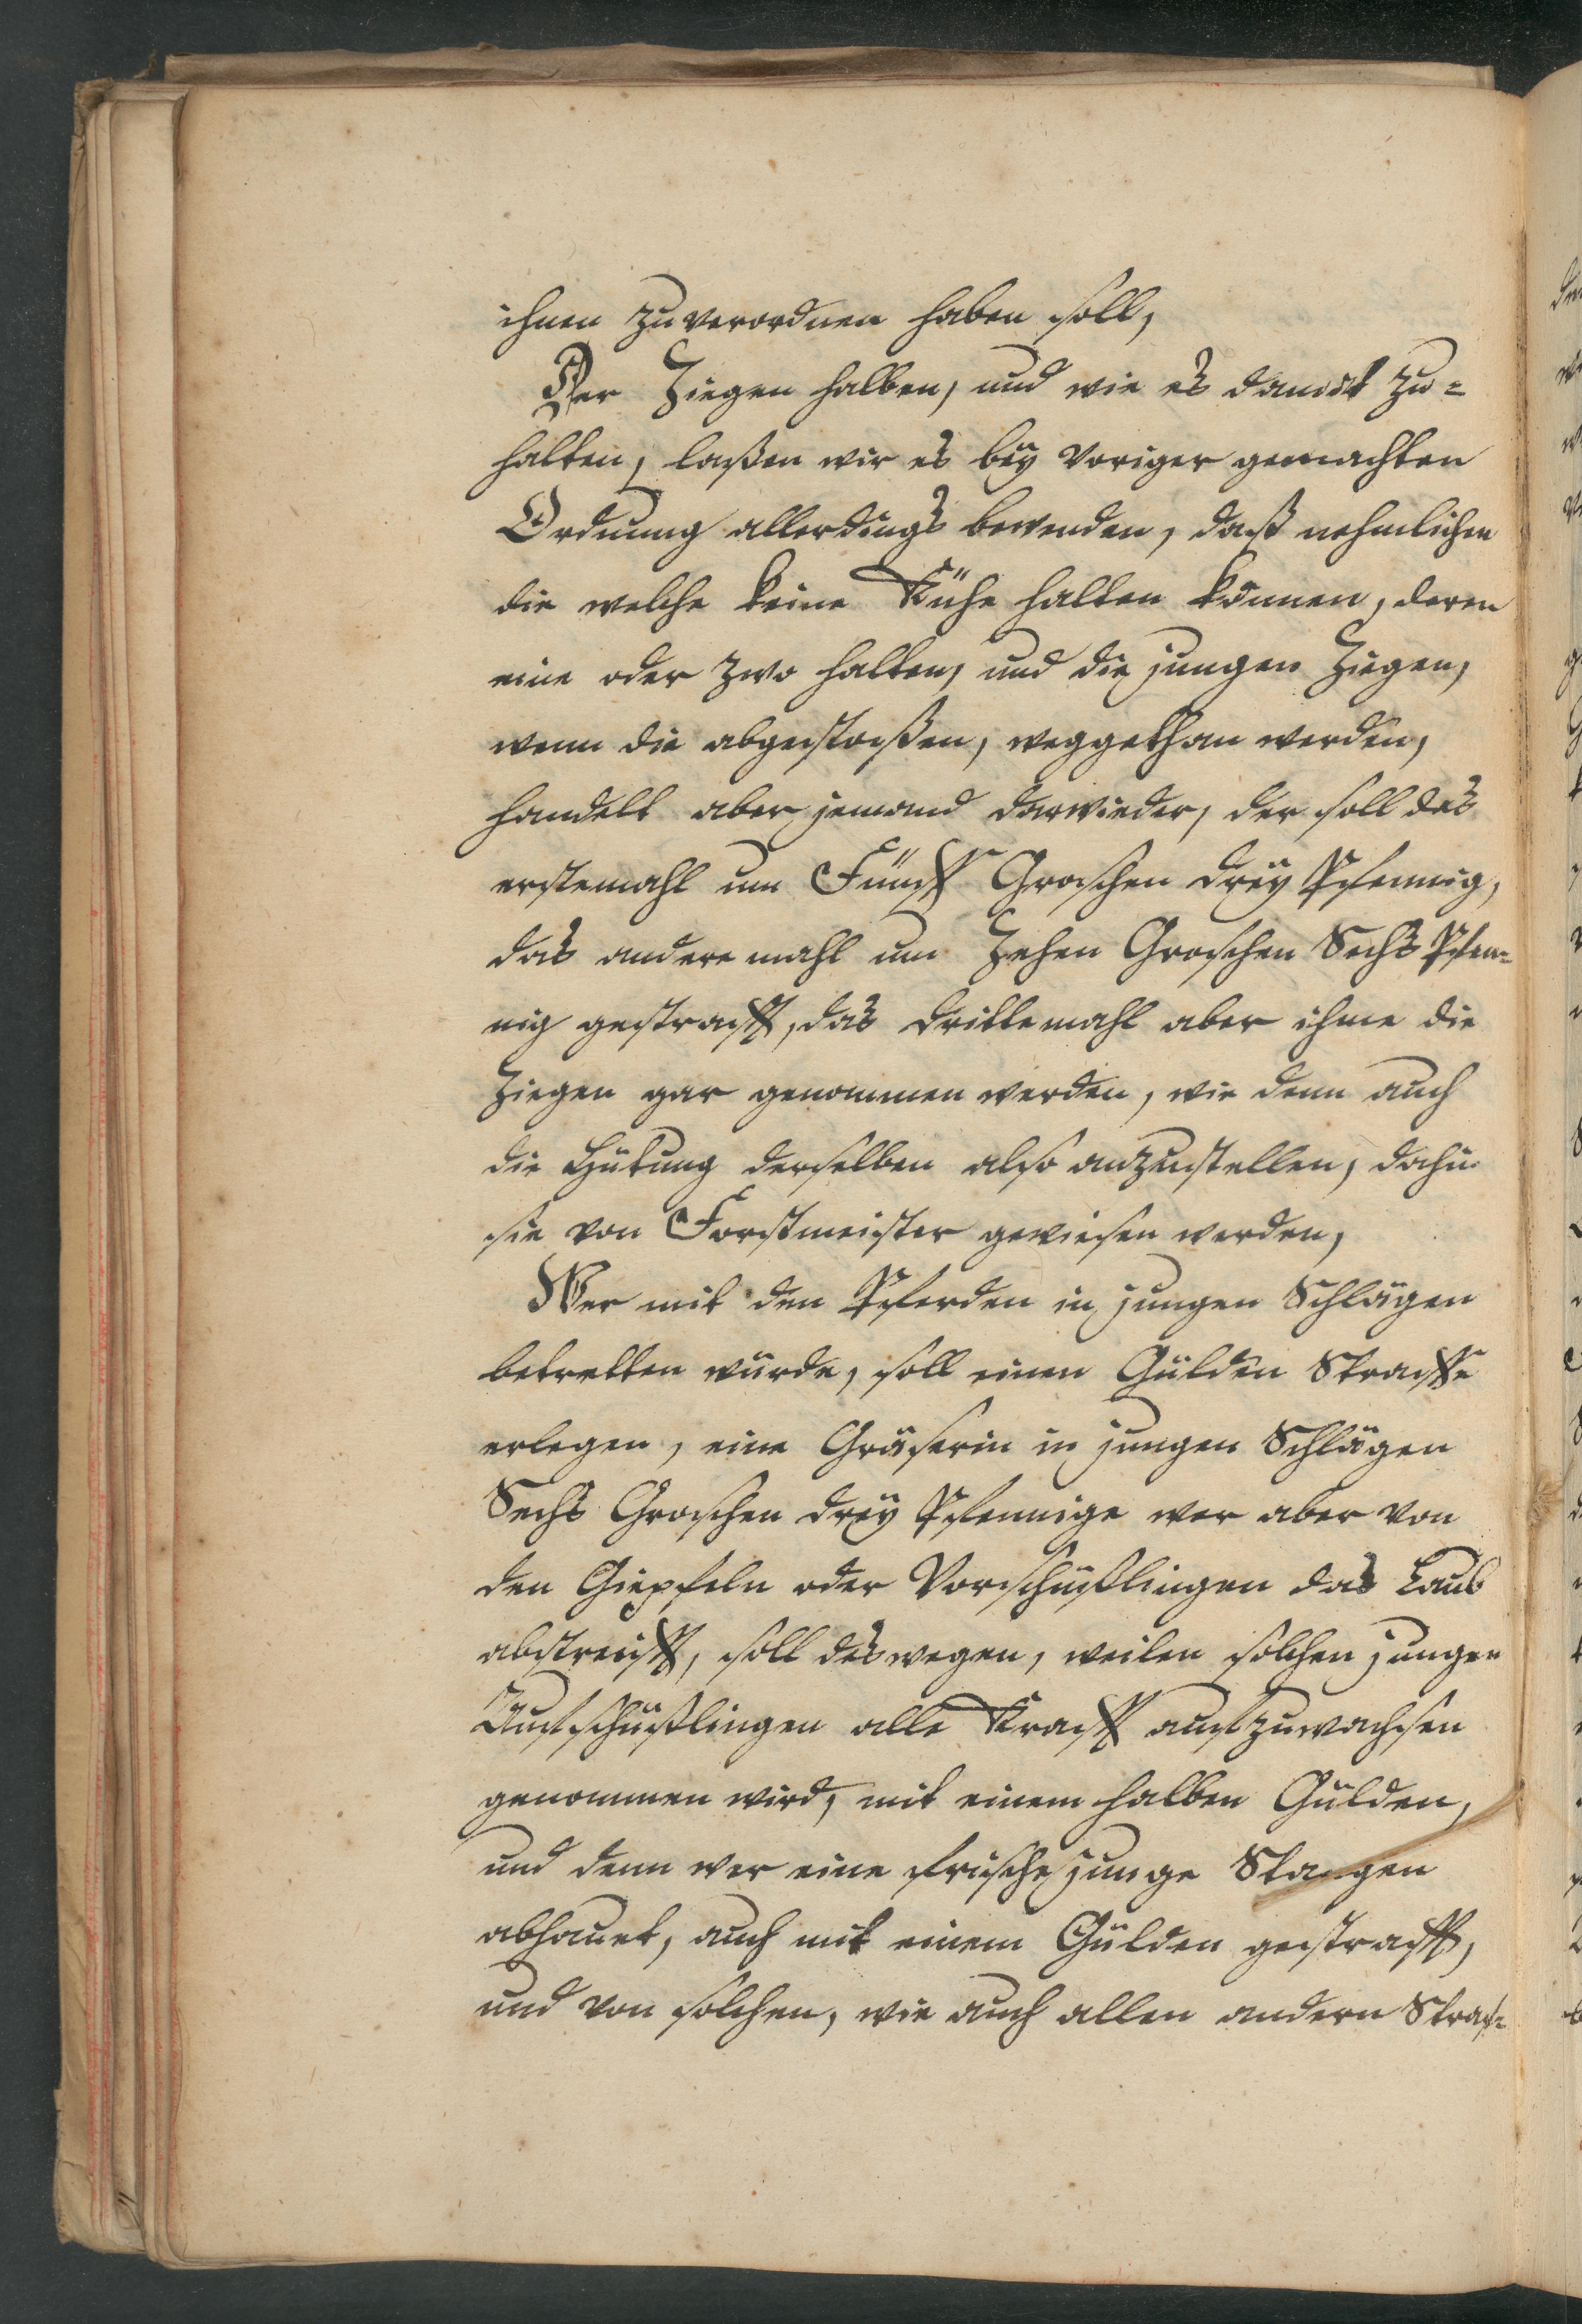 ihnen zu verordnen haben soll,
Der Ziegen halben, und wie es damit zu-
halten, laßen wir es bey voriger gemachten
Ordnung allerdings bewenden, daß nehmlichen
die welche keine Kühe halten können, deren
eine oder zwo halten, und die jungen Ziegen,
wenn die abgestoßen, weggethan werden,
handelt aber jemand darwieder, der soll das
erstemahl um Fünff Groschen drey Pfennig,
das andere mahl um Zehen Groschen Sechs Pfen-
nig gestrafft, das drittemahl aber ihme die
Ziegen gar genommen werden, wie denn auch
die Hütung derselben also anzustellen, dahin
sie von Forstmeister gewiesen werden,
Wer mit den Pferden in jungen Schlägen
betretten würde, soll einen Gülden Straffe
erlegen, eine Gräserin in jungen Schlägen
Sechs Groschen drey Pfennige wer aber von
den Giepfeln oder Vorschüßlingen das Laub
abstreifft, soll deswegen, weilen solchen jungen
Aufschüßlingen alle Krafft aufzuwachsen
genommen wird, mit einem halben Gülden,
und denn wer eine frische junge Stangen
abhauet, auch mit einem Gülden gestrafft,
und von solchen, wie auch allen andern Straf-